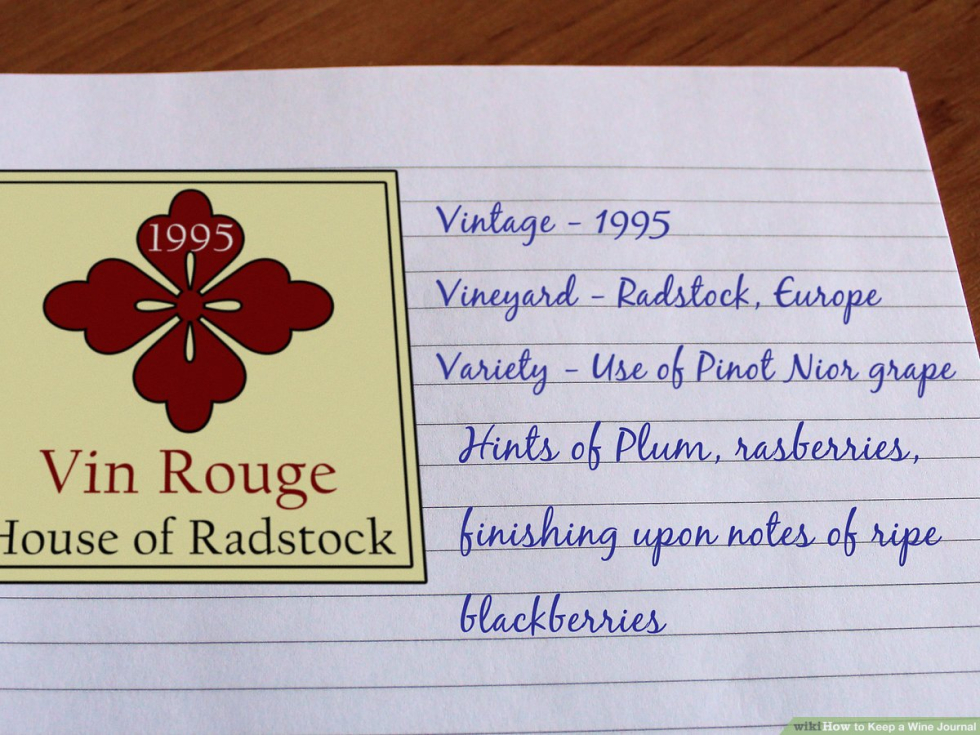 1995
Vin Rouge
House of Radstock
Vintage - 1995
Vineyard - Radstock, Europe
Variety - Use of Pinot Nior grape
Hints of Plum, rasberries,
finishing upon notes of ripe
blackberries
wikiHow to Keep a Wine Journal